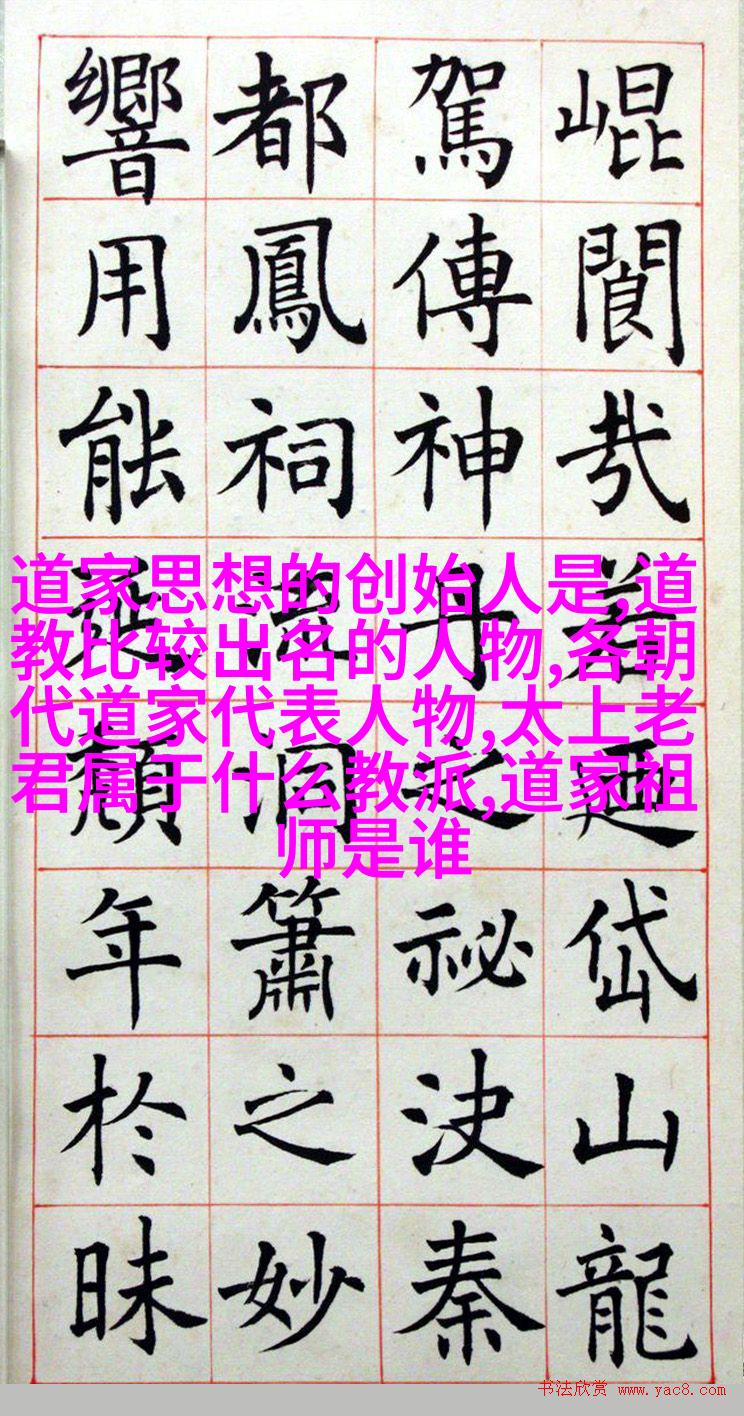 崐閬㢤若廼岱山龍
駕傳神丹之祕決秦
都鳳祠流洞簫之妙
響用能延頹年於昧
道家思想的创始人是,道
教比较出名的人物,各朝
代道家代表人物,太上老
君属于什么教派,道家祖
师是谁
书法欣赏 www.yac8.com